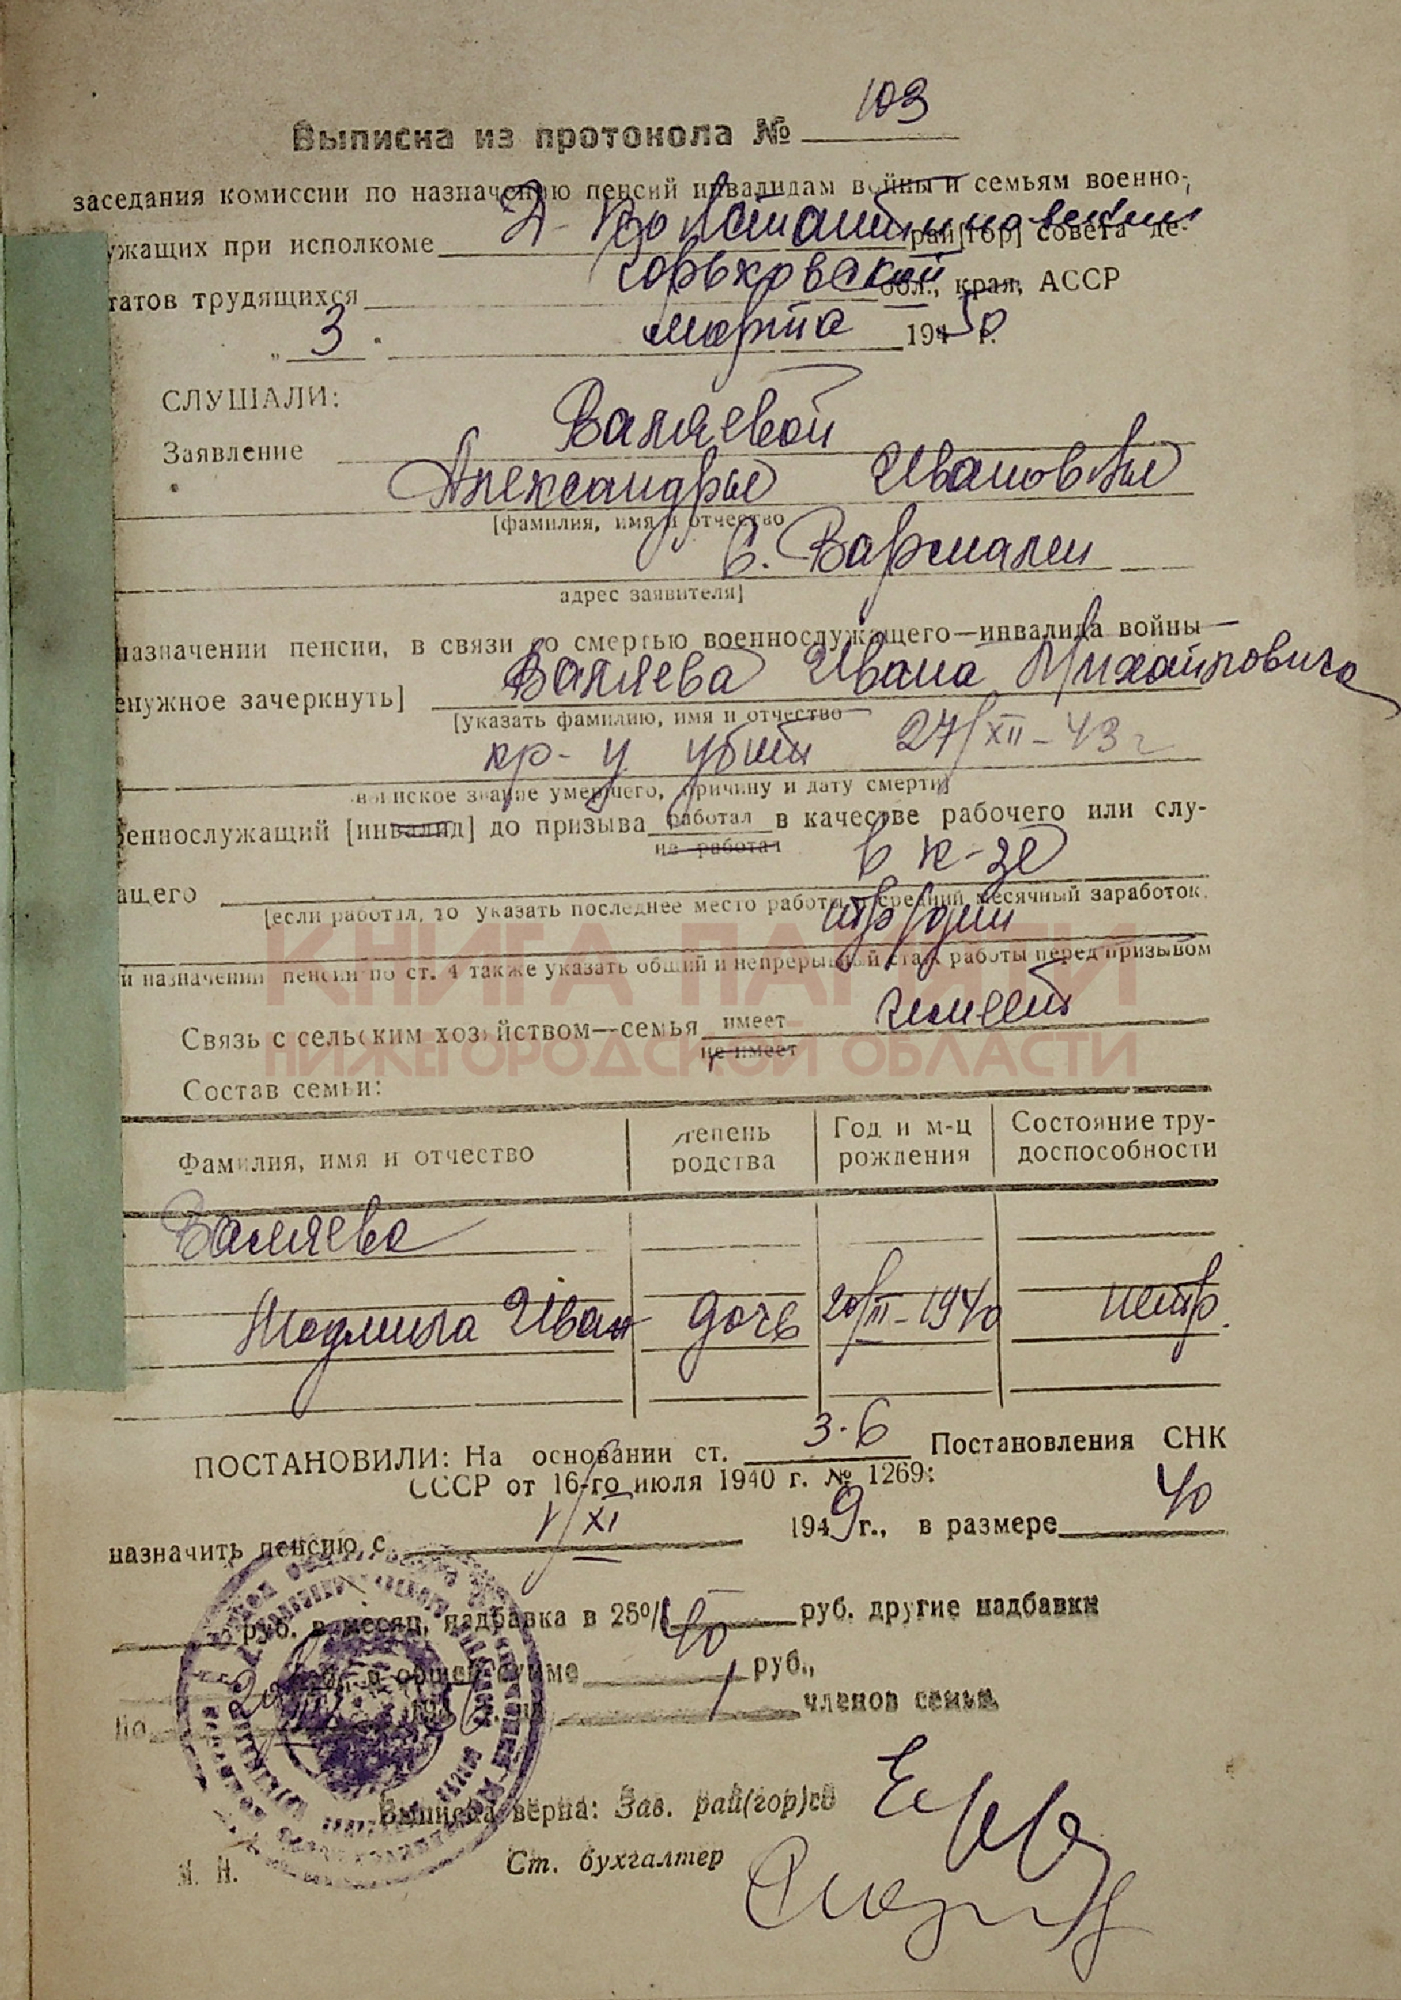 Выписка из протокола № 103
заседания комиссии по назначению пенсий инвалидам войны и семьям военно-
ужащих при исполкоме Д-Константиновский рай[гор] совета де-
татов трудящихся Горьковской обл., края, АССР
„ 3 " марта 1950 г.
СЛУШАЛИ:
Заявление Валяевой
Александры Ивановны
[фамилия, имя и отчество
с. Вармалеи
адрес заявителя]
назначении пенсии, в связи со смертью военнослужащего—инвалида войны
енужное зачеркнуть] Валяева Ивана Михайловича
[указать фамилию, имя и отчество
кр-ц убит 27/XII-43 г
воинское звание умершего, причину и дату смерти]
оеннослужащий [инвалид] до призыва работал в качестве рабочего или слу-
не работал
ащего в к-зе
[если работал, то указать последнее место работы и средний месячный заработок,
тр/дни
и назначении пенсии по ст. 4 также указать общий и непрерывный стаж работы перед призывом
КНИГА ПАМЯТИ
НИЖЕГОРОДСКОЙ ОБЛАСТИ
Связь с сельским хозяйством—семья имеет имеет
не имеет
Состав семьи:
Фамилия, имя и отчество степень родства Год и м-ц рождения Состояние тру-доспособности
Валяева
Людмила Иван дочь 20/III-1940 нетр.
ПОСТАНОВИЛИ: На основании ст. 3-6 Постановления СНК
СССР от 16-го июля 1940 г. № 1269:
назначить пенсию с 1/XI 1949 г., в размере 40
руб. в месяц, надбавка в 25% руб. другие надбавки
в общей сумме 40 руб.,
по 1956 г. на 1 членов семьи.
Выписка верна: Зав. рай(гор)со
Ст. бухгалтер
М. П.